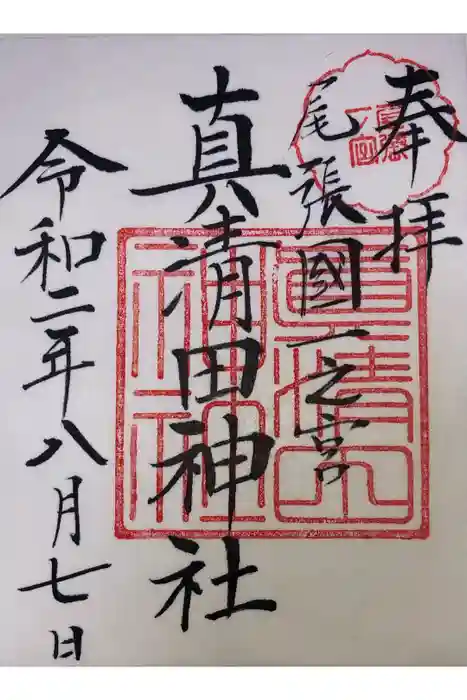 奉拝
尾張國一之宮
真清田神社
令和二年八月七日
真清田
神社